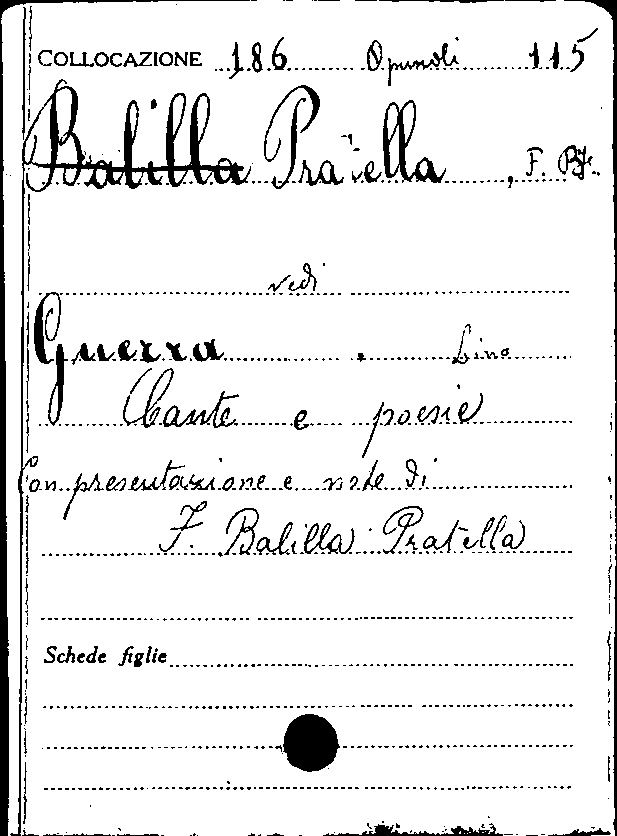 COLLOCAZIONE 186 Opuscoli 115
Balilla Pratella, F. B.
vedi
Guerra. Lino
Cante e poesie
Con presentazione e note di
F. Balilla Pratella
Schede figlie